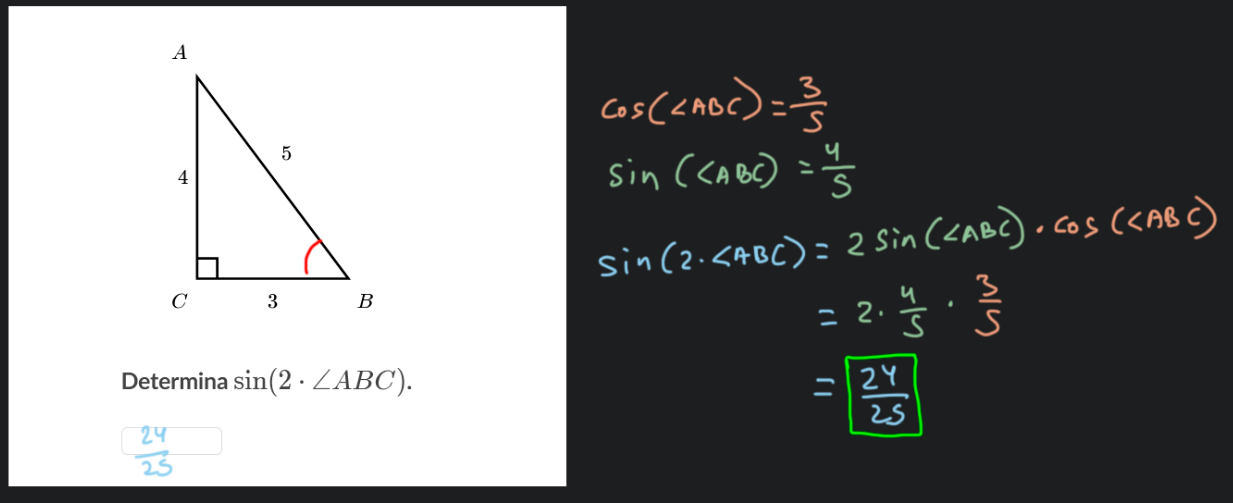 A
5
4
C
3
B
Determina sin(2 · ∠ABC).
24
25
cos(∠ABC) = 3/5
sin(∠ABC) = 4/5
sin(2·∠ABC) = 2 sin(∠ABC) · cos(∠ABC)
= 2 · 4/5 · 3/5
= 24/25